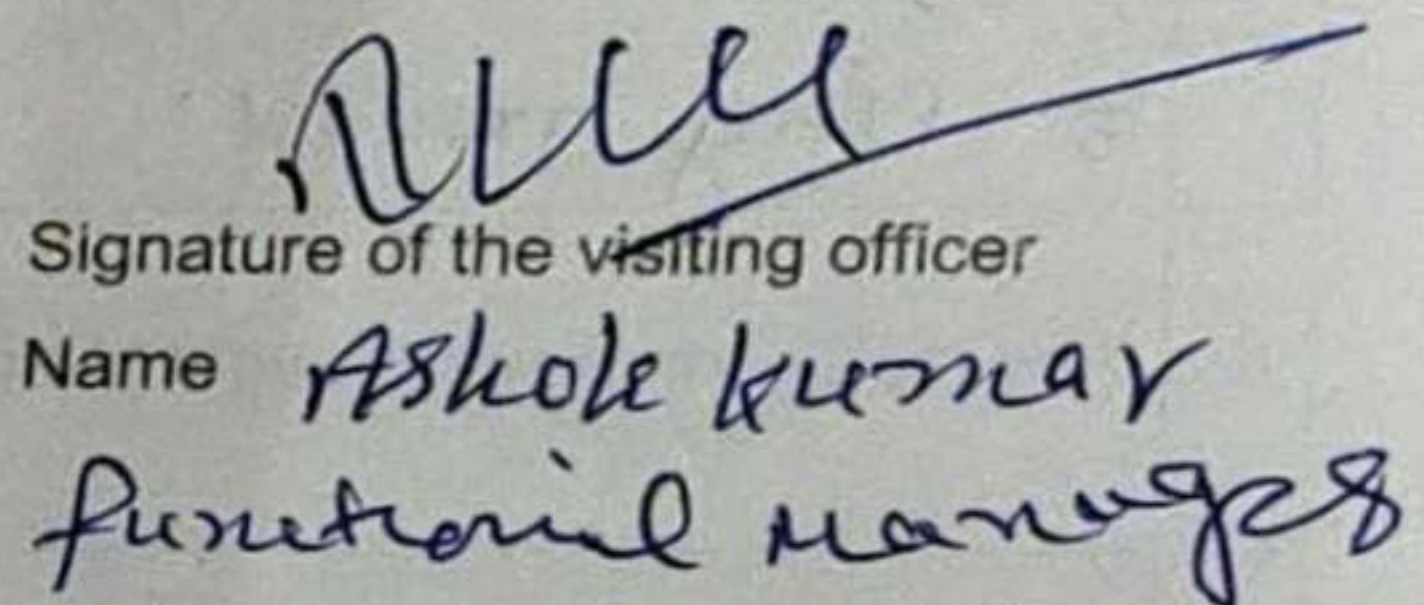 Signature of the visiting officer
Name Ashok Kumar
functional Manager